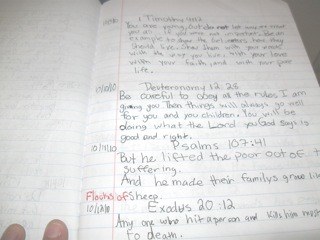 1 Timothy 4:12
You are young, but do not let any one treat
you as if you were not important. Be an
example to show the believers how they
should live. Show them with your words
with the way you live, with your love
with your faith, and with your pure
life.
10/10/10 Deuteronomy 12:28
Be careful to obey all the rules I am
giving you. Then things will always go well
for you and you children. You will be
doing what the Lord your God says is
good and right.
10/11/10 Psalms 107:41
But he lifted the poor out of
suffering.
And he made their familys grow like
Flocks of Sheep.
10/12/10 Exodus 20:12
Any one who hit a person and kills him must
to death.